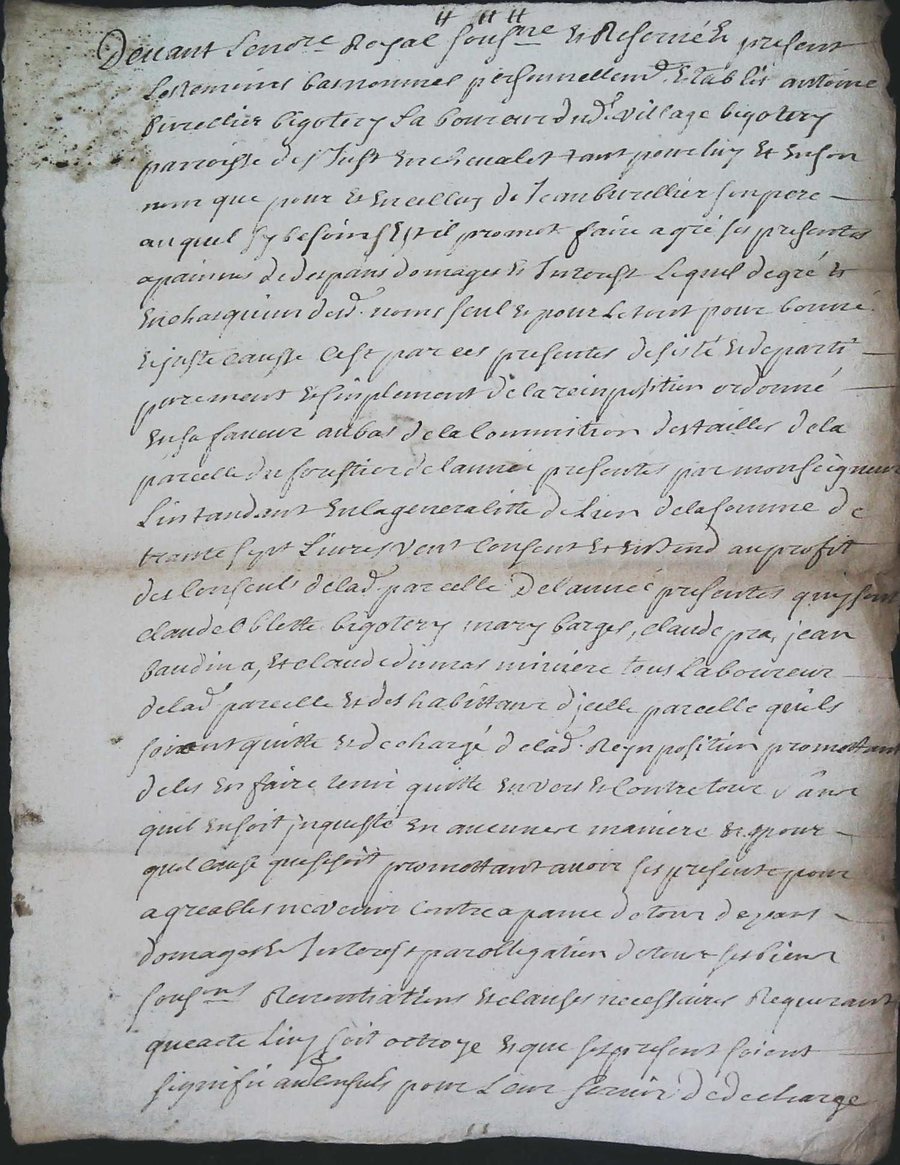 Devant Le no.re Royal sous.ne et Reservé et present
Les temoins bas nommes personnellem.t Etablis antoine
Burellier bigotery Laboureur du d.t village bigotery
parroisse de s.t Just en chevalet tant pour luy et en son
nom que pour et en celluy de Jean burellier son pere
auquel sy besoins Est il promet faire agré ses presentes
a painnes de despans domages et Interest Lequel de gré et
en chasquiun desd. noms seul et pour Le tout pour bonne
et juste causse cest par ces presentes desisté et departi
purement et simplement de la reinposition ordonné
en sa faveur au bas de la Commition des tailles de la
parcelle du forestier de l année presentes par monseigneur
L intandant en la generalitté de Lion de la somme de
trante sept Livres veut Consent et entend au profit
des Consculs de lad. parcelle De l année presentes quy sont
claude Oblette bigotery mary barges, claude pra, jean
baudina, et claude dumas miniere tous Laboureur
de lad. parcelle et des habittans d jcelle parcelle quils
soient quitte et dechargé de lad. Reynposition promettant
de les en faire tenir quitte envers et Contre tous sans
quil en soit jnquesté en aucunne maniere et pour
quel cause que se soit promettant avoir ses presente pour
agreables ne venir contre a paine de tous depans
domages et Interest par obligation de tous ses biens
sous.ns Renontiations et clauses necessaires Requerant
que acte Luy soit octroyé et que ses present soient
signifié aud. Consuls pour Leur servir de decharge